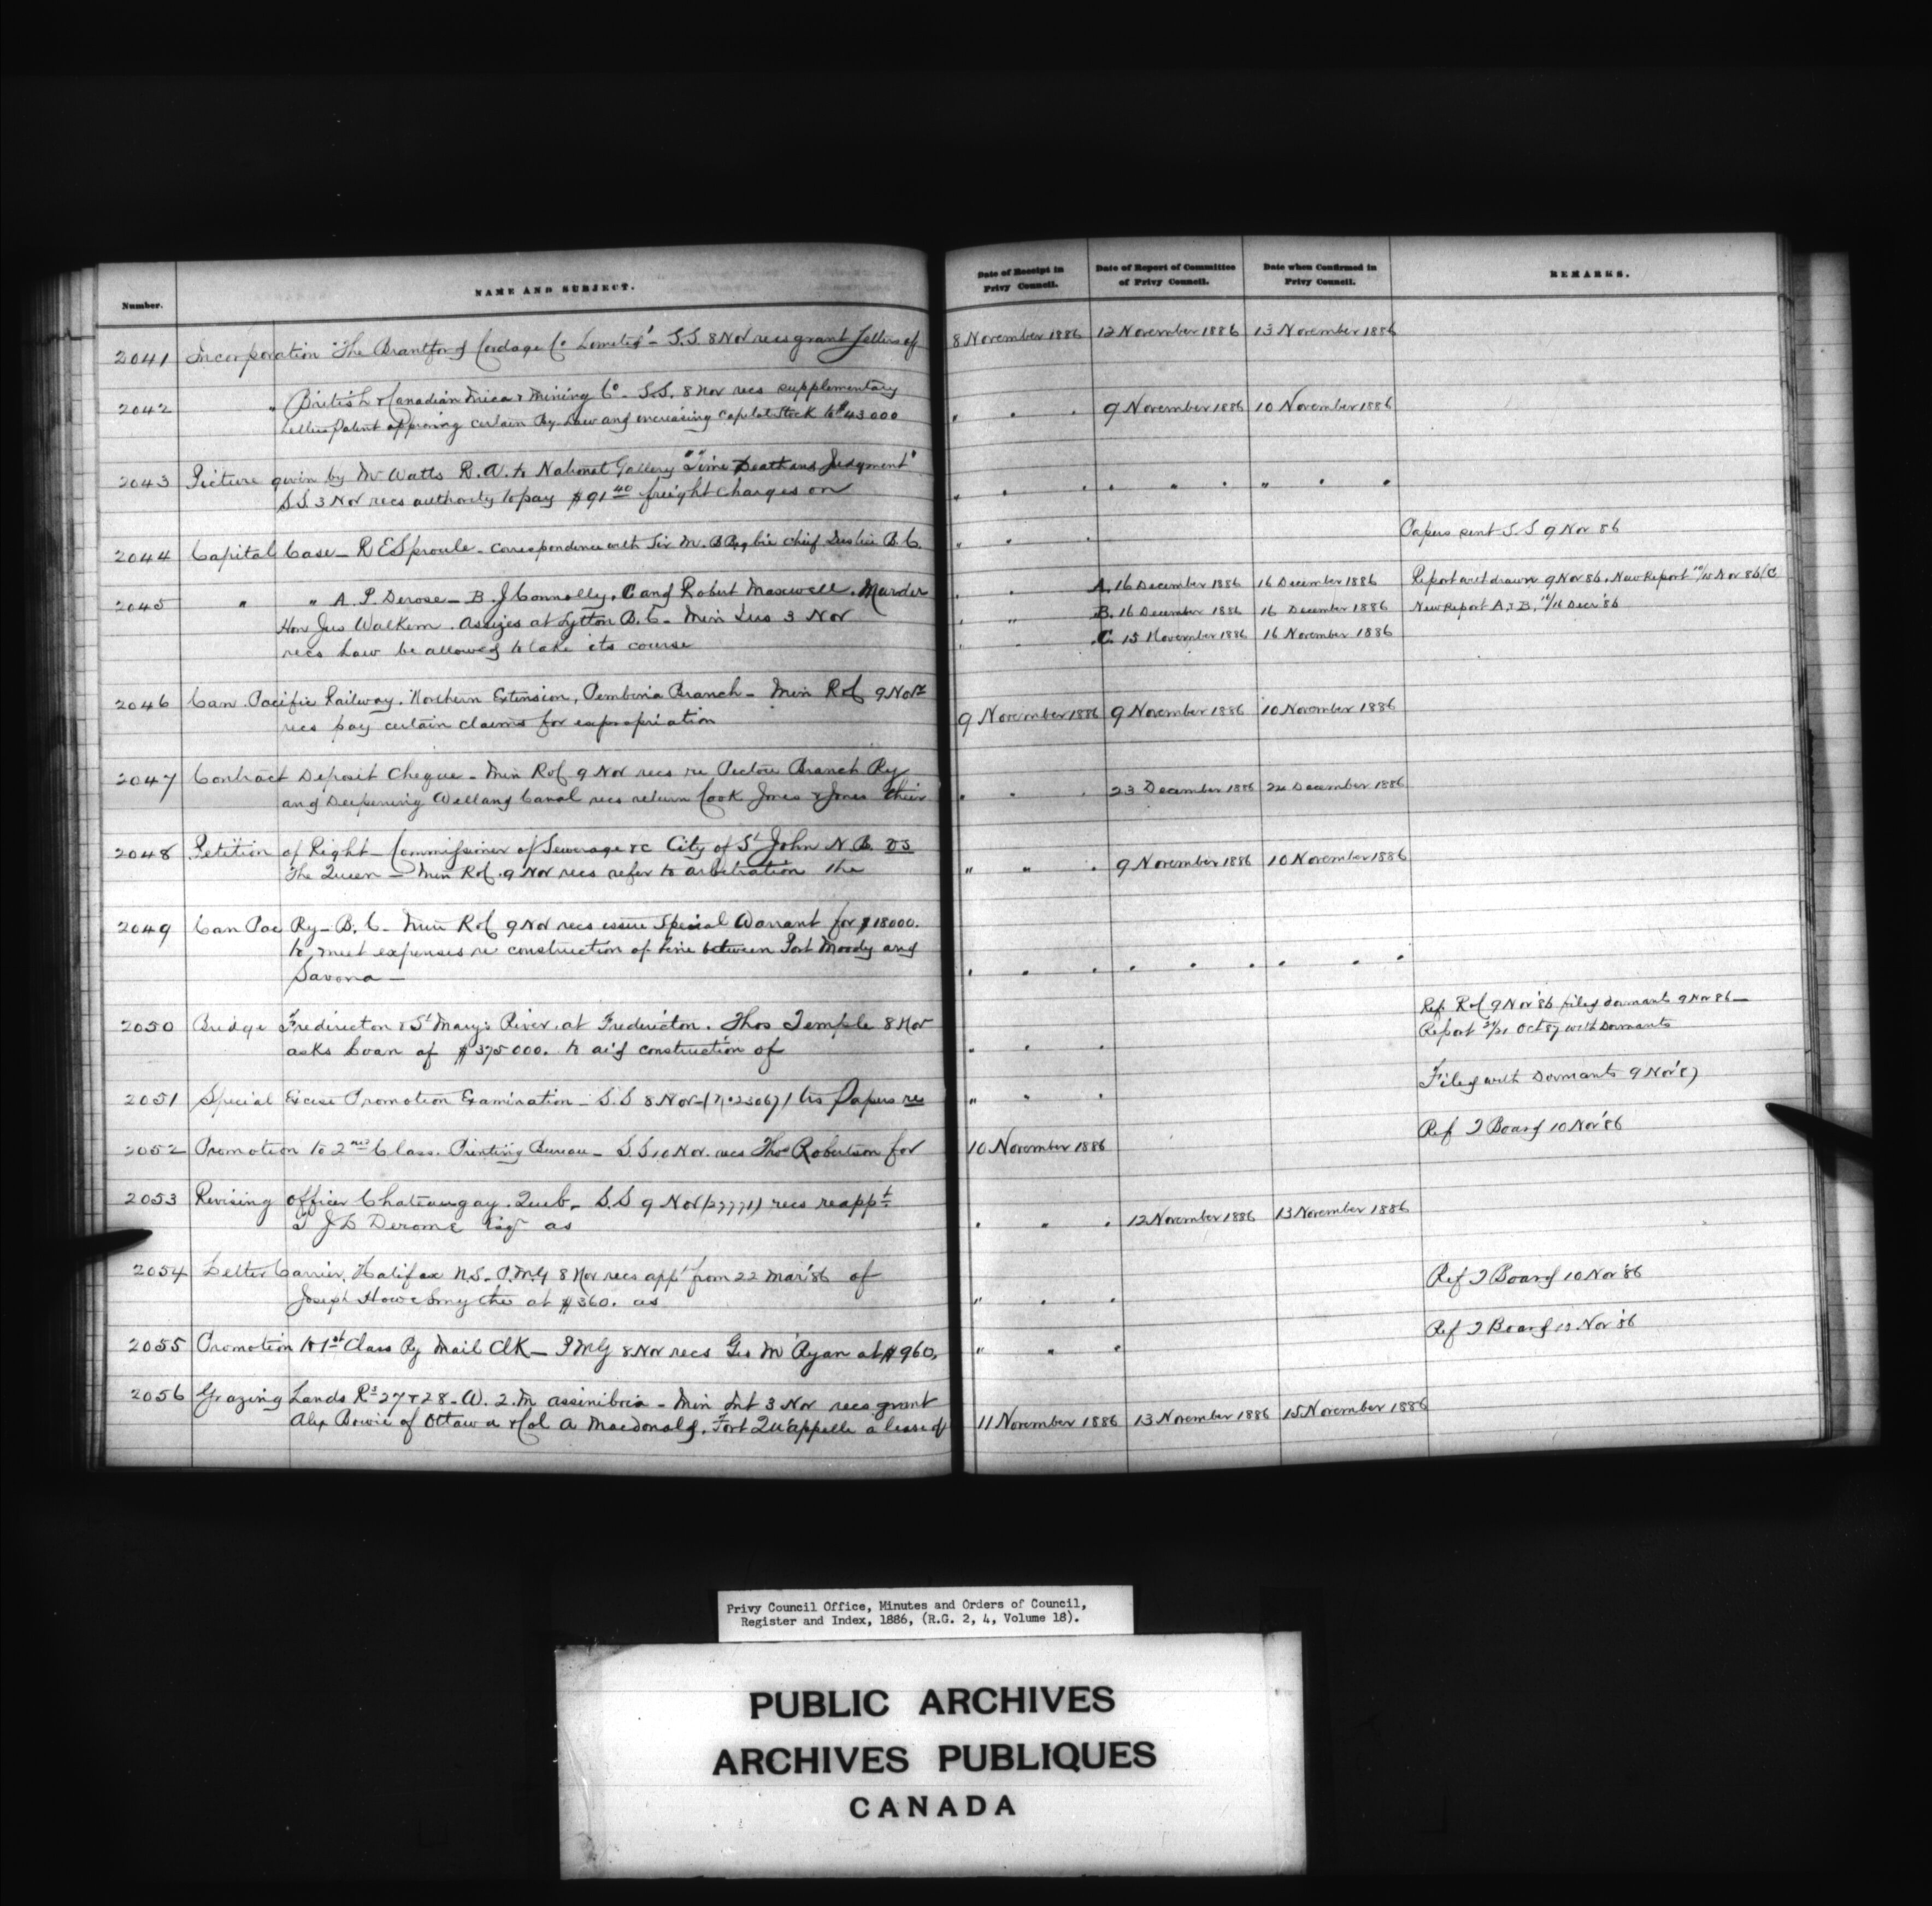 Number.
NAME AND SUBJECT.
Date of Receipt in Privy Council.
Date of Report of Committee of Privy Council.
Date when Confirmed in Privy Council.
REMARKS.
2041 Incorporation "The Brantford Cordage Co Limited" - S.S. 8 Nov recs grant Letters of 8 November 1886 12 November 1886 13 November 1886
2042 " British & Canadian Mica & Mining Co - S.S. 8 Nov recs supplementary
Letters Patent approving certain By-Law and increasing Capital Stock to $43000 " " " 9 November 1886 10 November 1886
2043 Picture given by Mr Watts R.A. to National Gallery "Time Death and Judgment"
S.S. 3 Nov recs authority to pay $91 40 freight charges on " " " " " " " " "
2044 Capital Case - R E Sproule - Correspondence with Sir M. B Begbie Chief Justice B.C. " " " Papers sent S.S 9 Nov 86
2045 " " A. P. Derose - B. J Connolly, C and Robert Maxwell. Murder " " A. 16 December 1886 16 December 1886 Report withdrawn 9 Nov 86. New Report 15 Nov 86/C
Hon Jus Walkem. Assizes at Lytton B.C. - Min Jus 3 Nov " " B. 16 December 1886 16 December 1886 New Report A & B, 16 Decr '86
recs Law be allowed to take its course " " C. 15 November 1886 16 November 1886
2046 Can. Pacific Railway. Northern Extension, Pembina Branch - Min R&C 9 Nov
recs pay certain claims for expropriation 9 November 1886 9 November 1886 10 November 1886
2047 Contract Deposit Cheque - Min R&C 9 Nov recs re Pictou Branch Ry
and Deepening Welland Canal recs return Cook Jones & Jones their " " " 23 December 1886 24 December 1886
2048 Petition of Right - Commissioner of Sewerage &c City of St John N.B. vs
The Queen - Min R&C. 9 Nov recs refer to arbitration the " " " 9 November 1886 10 November 1886
2049 Can Pac Ry - B.C. Min R&C 9 Nov recs issue Special Warrant for $18000.
to meet expenses re construction of line between Port Moody and
Savona - " " " " " " " " "
2050 Bridge Fredericton & St Mary's River. at Fredericton. Thos Temple 8 Nov Ref R&C 9 Nov '86 filed dormants 9 Nov 86 -
asks Loan of $375000. to aid construction of " " " Report Oct 87 with Dormants
2051 Special Excise Promotion Examination - S.S 8 Nov - (No 23067) tis Papers re " " " Filed with Dormants 9 Nov '87
2052 Promotion to 2nd Class. Printing Bureau - S.S 10 Nov. recs Thos Robertson for 10 November 1886 Ref T Board 10 Nov '86
2053 Revising Officer Chateaugay. Queb. - S.S 9 Nov (27771) recs reappt
T J D Derome Esqr as " " " 12 November 1886 13 November 1886
2054 Letter Carrier. Halifax N.S. - P.M.G 8 Nov recs appt from 22 Mar '86 of
Joseph Howe Smythe at $360. as " " " Ref T Board 10 Nov '86
2055 Promotion to 1st Class Ry Mail Clk - PMG 8 Nov recs Geo M Ryan at $960, " " " Ref T Board 10 Nov '86
2056 Grazing Lands Rs 27 & 28 - W. 2. M Assiniboia - Min Int 3 Nov recs grant
Alex Bowie of Ottawa & Col A Macdonald. Fort Qu'appelle a lease of 11 November 1886 13 November 1886 15 November 1886
Privy Council Office, Minutes and Orders of Council,
Register and Index, 1886, (R.G. 2, 4, Volume 18).
PUBLIC ARCHIVES
ARCHIVES PUBLIQUES
CANADA